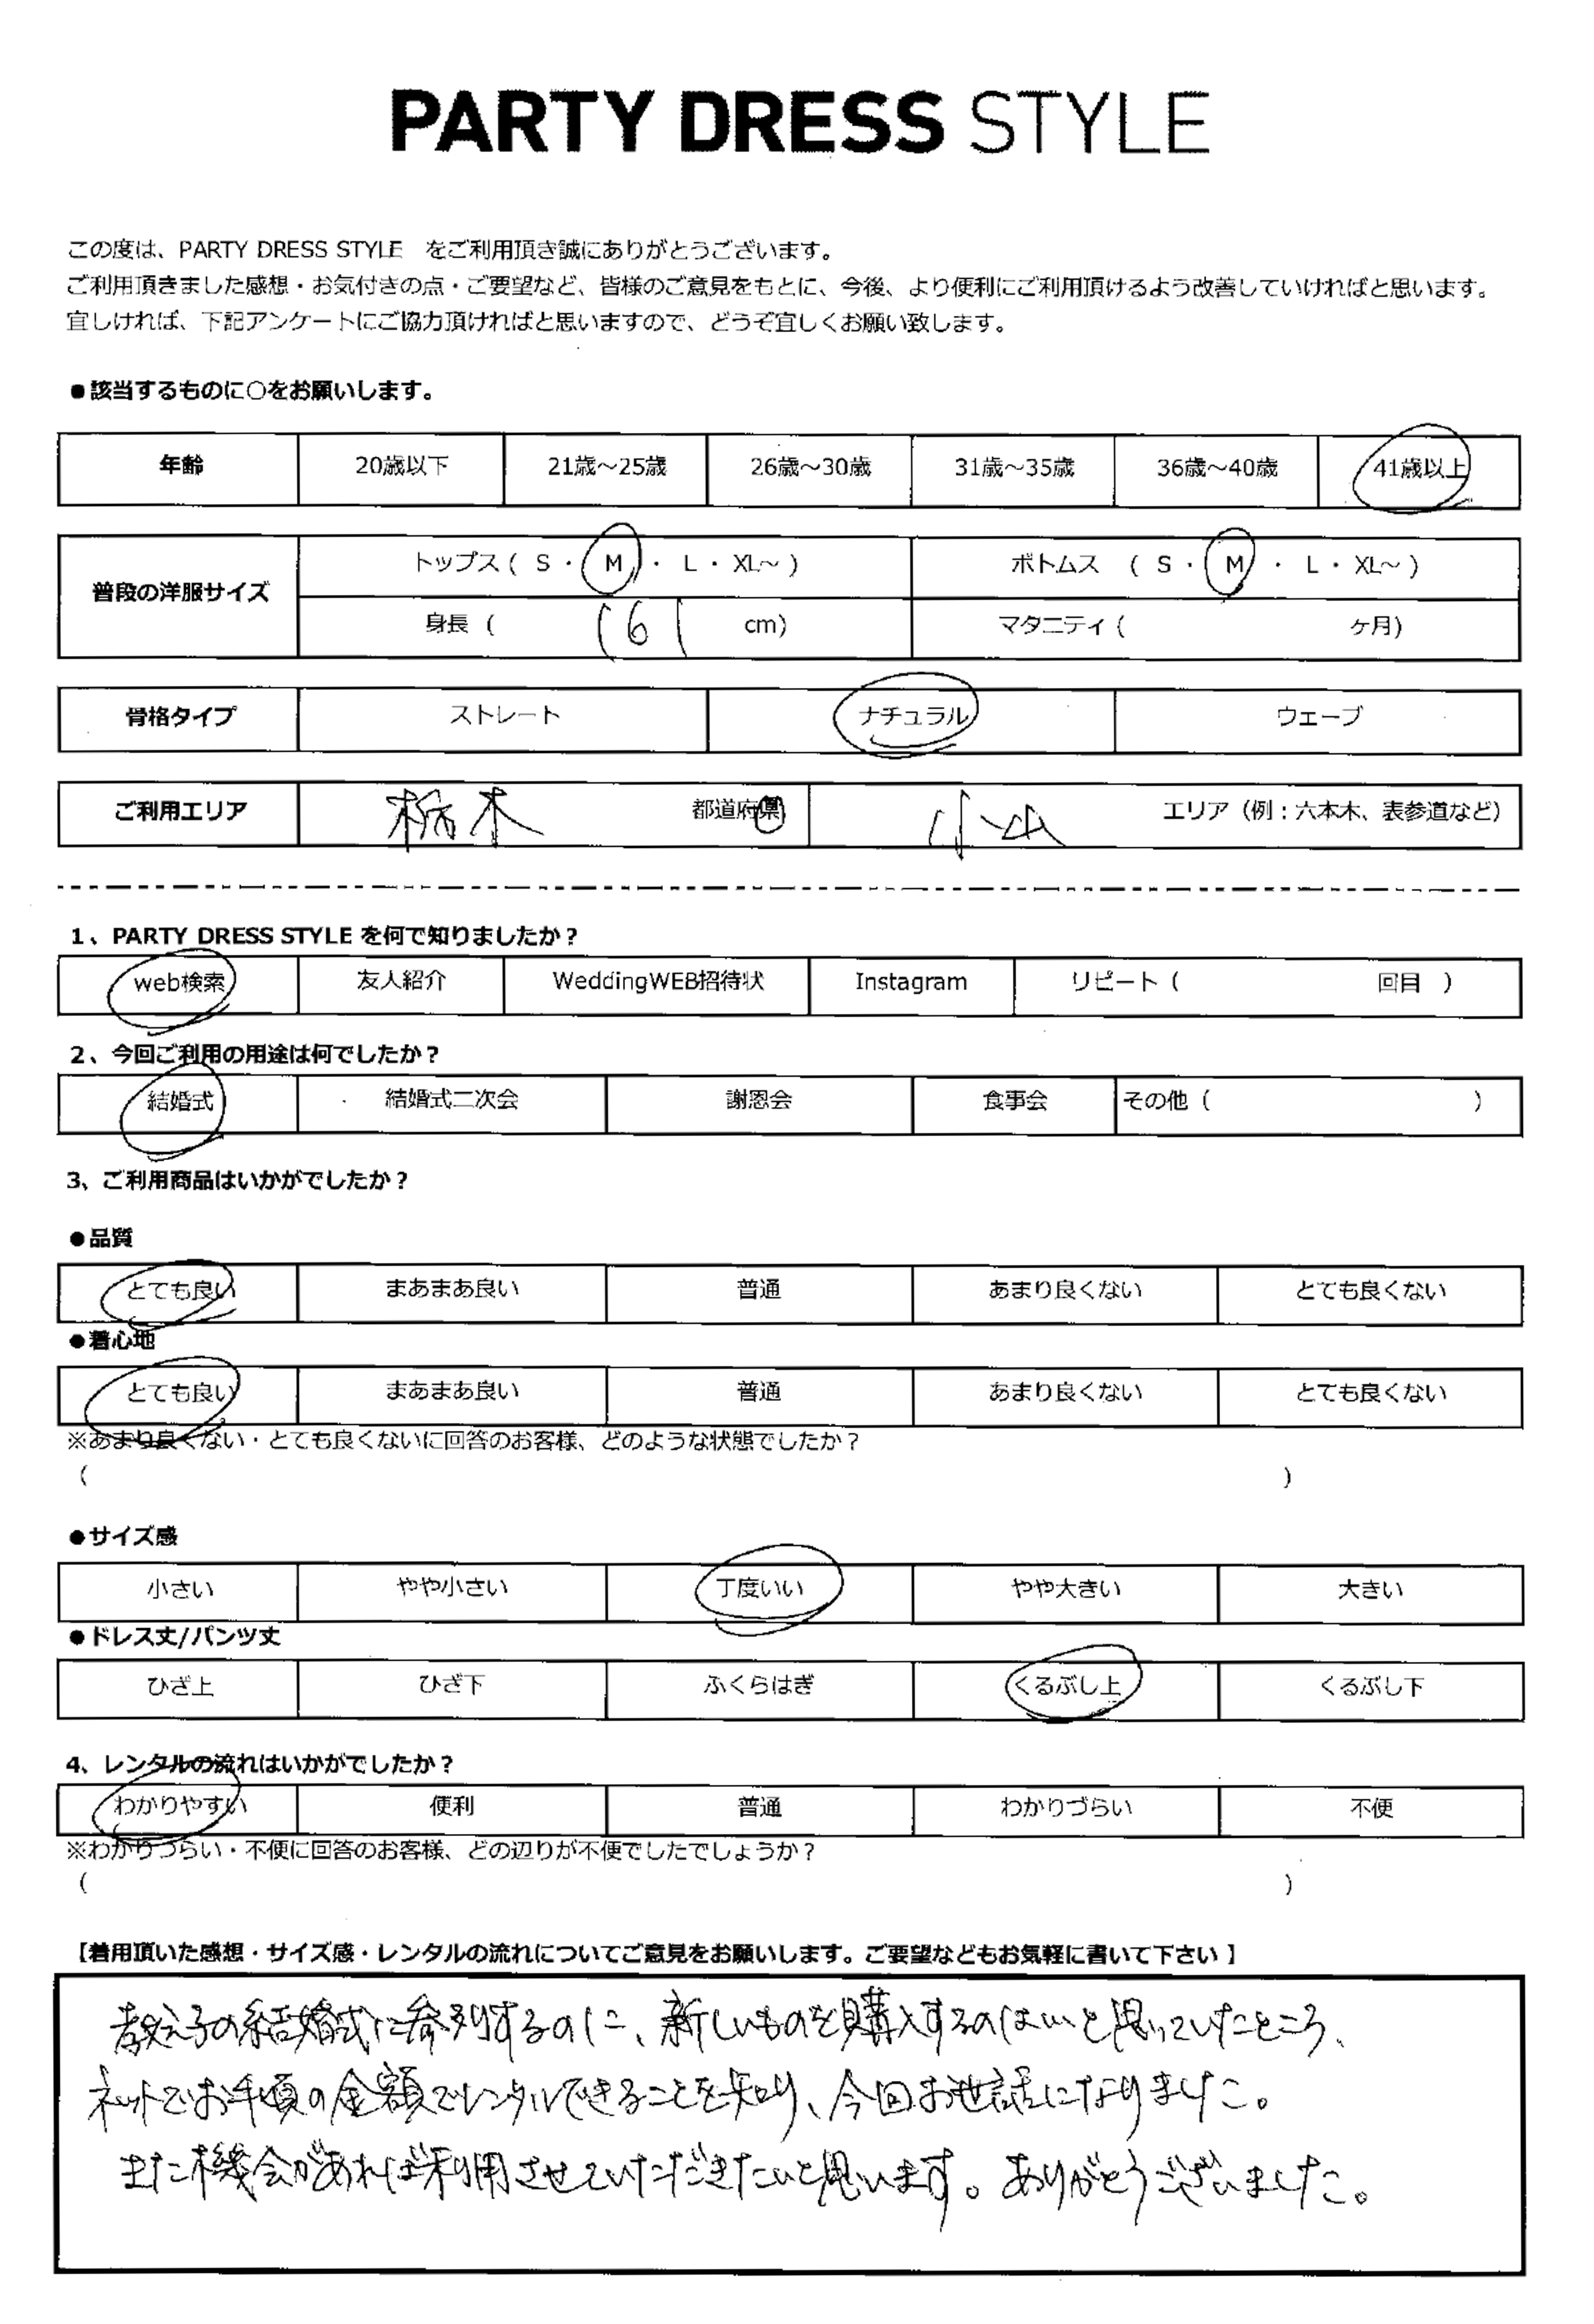 PARTY DRESS STYLE
この度は、PARTY DRESS STYLE をご利用頂き誠にありがとうございます。
ご利用頂きました感想・お気付きの点・ご要望など、皆様のご意見をもとに、今後、より便利にご利用頂けるよう改善していければと思います。
宜しければ、下記アンケートにご協力頂ければと思いますので、どうぞ宜しくお願い致します。
●該当するものに○をお願いします。
年齢 20歳以下 21歳～25歳 26歳～30歳 31歳～35歳 36歳～40歳 41歳以上
普段の洋服サイズ
トップス ( S ・ M ・ L ・ XL～ ) ボトムス ( S ・ M ・ L ・ XL～ )
身長 ( 161 cm) マタニティ ( ヶ月)
骨格タイプ ストレート ナチュラル ウェーブ
ご利用エリア 栃木 都道府県 小山 エリア（例：六本木、表参道など）
1、PARTY DRESS STYLE を何で知りましたか？
web検索 友人紹介 WeddingWEB招待状 Instagram リピート ( 回目 )
2、今回ご利用の用途は何でしたか？
結婚式 結婚式二次会 謝恩会 食事会 その他 ( )
3、ご利用商品はいかがでしたか？
●品質
とても良い まあまあ良い 普通 あまり良くない とても良くない
●着心地
とても良い まあまあ良い 普通 あまり良くない とても良くない
※あまり良くない・とても良くないに回答のお客様、どのような状態でしたか？
( )
●サイズ感
小さい やや小さい 丁度いい やや大きい 大きい
●ドレス丈/パンツ丈
ひざ上 ひざ下 ふくらはぎ くるぶし上 くるぶし下
4、レンタルの流れはいかがでしたか？
わかりやすい 便利 普通 わかりづらい 不便
※わかりづらい・不便に回答のお客様、どの辺りが不便でしたでしょうか？
( )
【着用頂いた感想・サイズ感・レンタルの流れについてご意見をお願いします。ご要望などもお気軽に書いて下さい 】
教え子の結婚式に参列するのに、新しいものを購入するのは…と思っていたところ、
ネットでお手頃の金額でレンタルできることを知り、今回お世話になりました。
また機会があれば利用させていただきたいと思います。ありがとうございました。